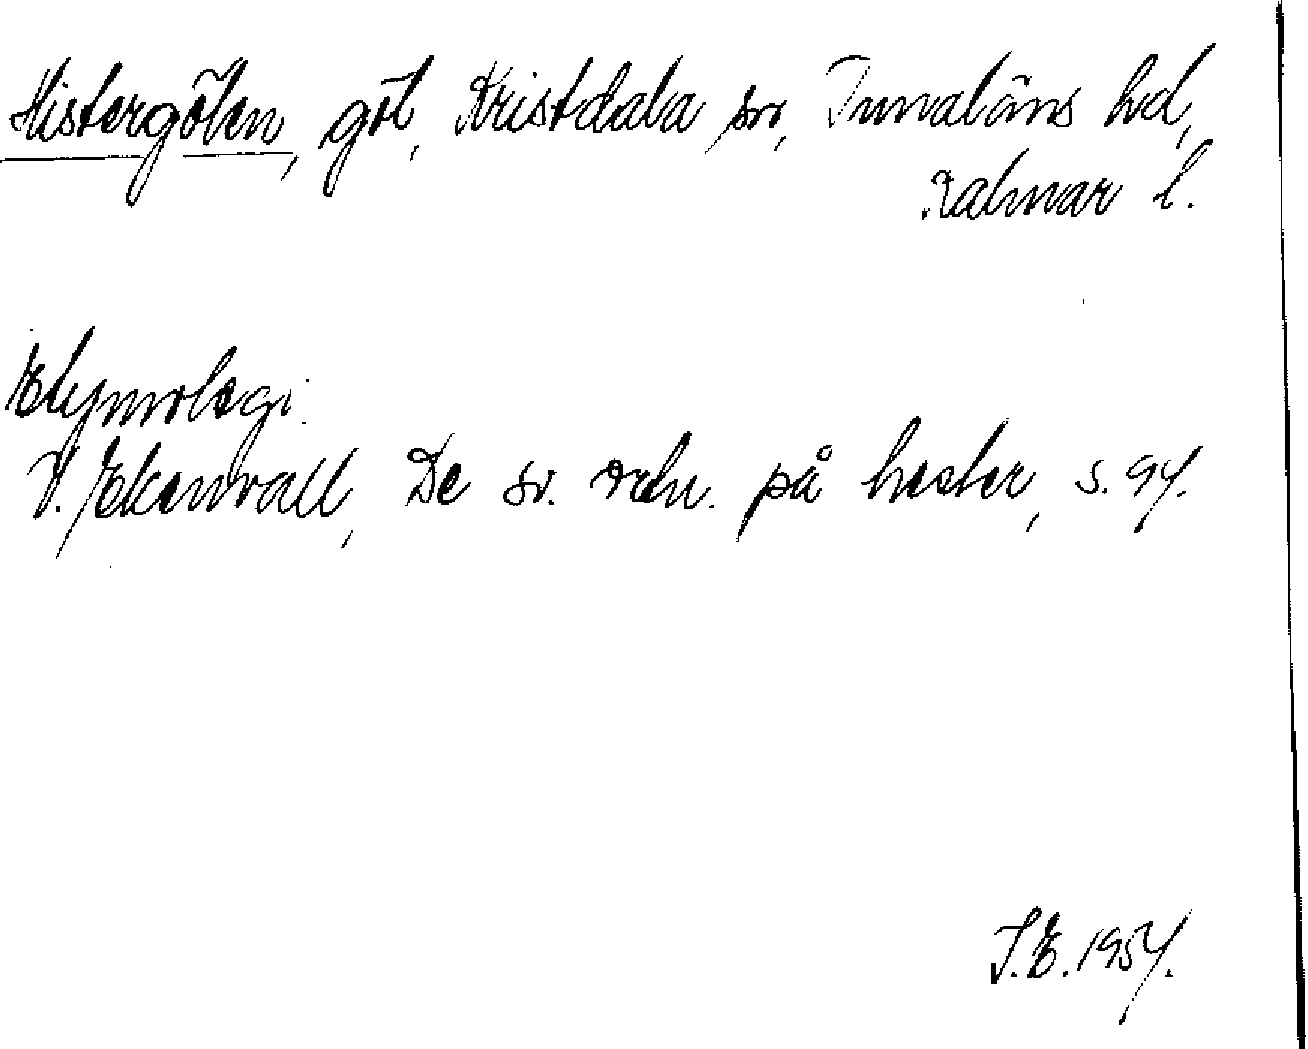 Histergölen, göl, Kristdala sn, Tunaläns hd,
Kalmar l.
Etymologi.
V. Ekenvall, De sv. seln. på hester, s. 94.
I.E. 1954.